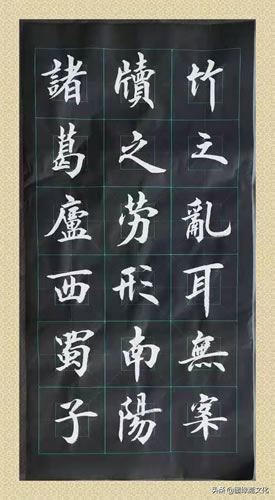 竹之亂耳無案
牘之劳形南陽
諸葛廬西蜀子
头条@墨缘阁文化